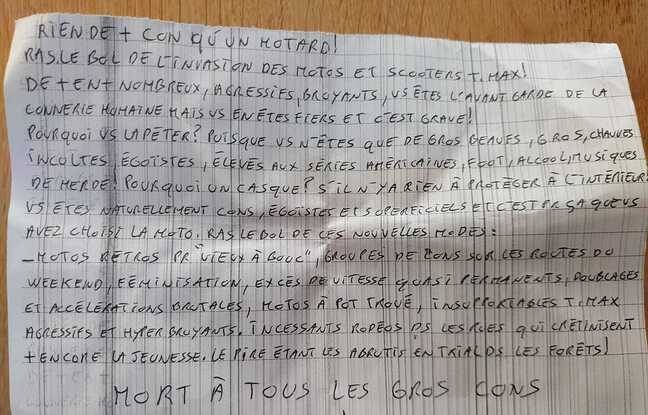 RIEN DE + CON QU'UN MOTARD!
RAS.LE BOL DE L'INVASION DES MOTOS ET SCOOTERS T.MAX!
DE + EN + NOMBREUX, AGRESSIFS, BRUYANTS, VS ÊTES L'AVANT GARDE DE LA
CONNERIE HUMAINE MAIS VS EN ÊTES FIERS ET C'EST GRAVE!
POURQUOI VS LA PÉTER? PUISQUE VS N'ÊTES QUE DE GROS BEAUFS, GROS, CHAUVES
INCULTES, ÉGOÏSTES, ÉLEVÉS AUX SÉRIES AMÉRICAINES, FOOT, ALCOOL, MUSIQUES
DE MERDE! POURQUOI UN CASQUE? S'IL N'Y A RIEN À PROTÉGER À L'INTÉRIEUR
VS ÊTES NATURELLEMENT CONS, ÉGOÏSTES ET SUPERFICIELS ET C'EST PR ÇA QUE VS
AVEZ CHOISI LA MOTO. RAS LE BOL DE CES NOUVELLES MODES:
- MOTOS RÉTROS PR "VIEUX À GOUC", GROUPES DE CONS SUR LES ROUTES DU
WEEKEND, FÉMINISATION, EXCÈS DE VITESSE QUASI PERMANENTS, DOUBLAGES
ET ACCÉLÉRATIONS BRUTALES, MOTOS À POT TROUÉ, INSUPPORTABLES T.MAX
AGRESSIFS ET HYPER BRUYANTS. INCESSANTS RODÉOS DS LES RUES QUI CRÉTINISENT
+ ENCORE LA JEUNESSE. LE PIRE ÉTANT LES ABRUTIS EN TRIAL DS LES FORÊTS!
MORT À TOUS LES GROS CONS